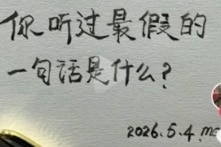 你听过最假的
一句话是什么？
2026.5.4.